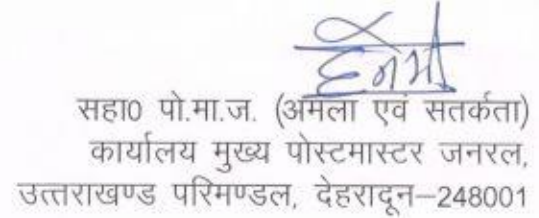 सहा0 पो.मा.ज. (अमला एवं सतर्कता)
कार्यालय मुख्य पोस्टमास्टर जनरल,
उत्तराखण्ड परिमण्डल, देहरादून–248001